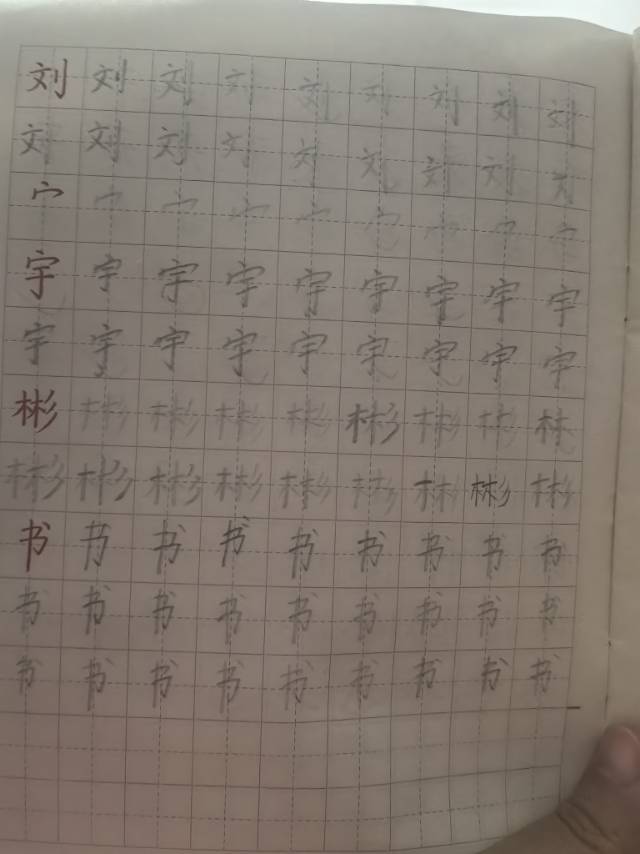 刘刘刘刘刘刘刘刘刘
刘刘刘刘刘刘刘刘刘
宀宀宀宀宀宀宀宀宀
宇宇宇宇宇宇宇宇宇
宇宇宇宇宇宇宇宇宇
彬彬彬彬彬彬彬彬林
彬彬彬彬彬彬彬彬彬
书书书书书书书书书
书书书书书书书书书
书书书书书书书书书